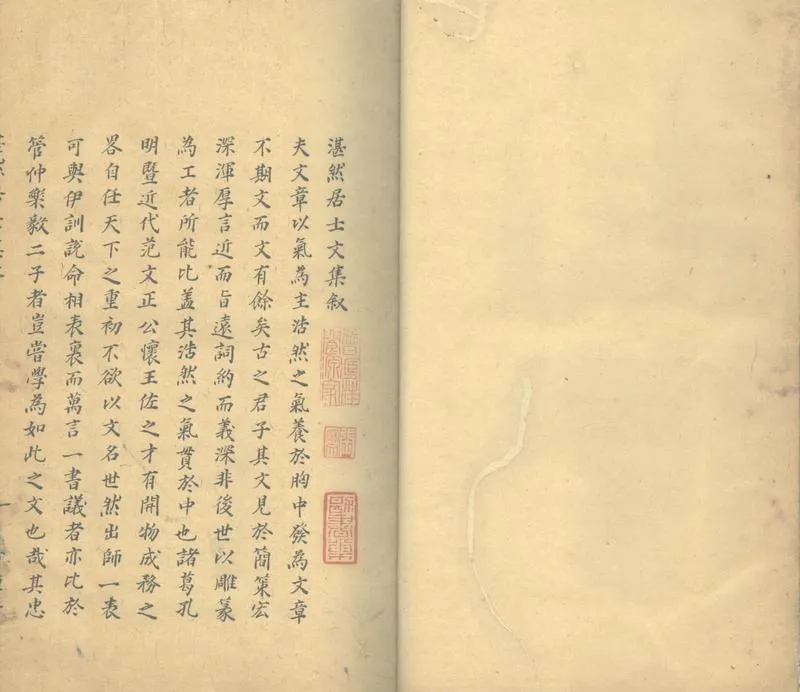 湛然居士文集叙
夫文章以氣為主浩然之氣養於胸中發為文章
不期文而文有餘矣古之君子其文見於簡策宏
深渾厚言近而旨遠詞約而義深非後世以雕篆
為工者所能比蓋其浩然之氣貫於中也諸葛孔
明暨近代范文正公懷王佐之才有開物成務之
畧自任天下之重初不欲以文名世然出師一表
可與伊訓說命相表裏而萬言一書議者亦比於
管仲樂毅二子者豈嘗學為如此之文也哉其忠